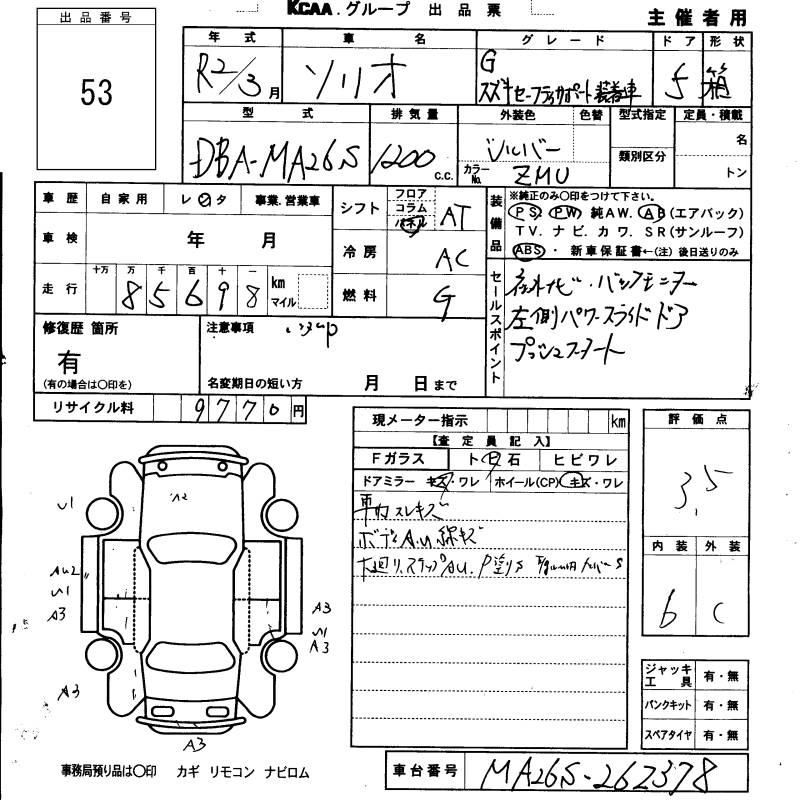 KCAA.グループ 出品票
主催者用
出品番号
53
年式 車名 グレード ドア 形状
R2/3月 ソリオ G
スズキセーフティサポート装着車 5 箱
型式 排気量 外装色 色替 型式指定 定員・積載
DBA-MA26S 1200 c.c. シルバー 名
カラーNo. ZMU 類別区分 トン
車歴 自家用 レンタ 事業.営業車
シフト フロア コラム パネル AT
装備品 ※純正のみ〇印をつけて下さい。
PS PW 純AW. AB(エアバック)
TV. ナビ. カワ. SR(サンルーフ)
ABS ・新車保証書←(注)後日送りのみ
車検 年 月
冷房 AC
走行 十万 万 千 百 十 一
85698 km マイル
燃料 G
セールスポイント
社外ナビ・バックモニター
左側パワースライドドア
プッシュスタート
修復歴 箇所
有
(有の場合は〇印を)
注意事項
名変期日の短い方 月 日まで
リサイクル料 9770円
現メーター指示 km
【査定員記入】
Fガラス ト ビ 石 ヒビワレ
ドアミラー キズ・ワレ ホイール(CP) キズ・ワレ
車内スレキズ
ボディA.U線キズ
評価点
3.5
内装 外装
6 C
U1
A2
AU2
U1
A3
A3
A3
U1
A3
A3
ジャッキ工具 有・無
パンクキット 有・無
スペアタイヤ 有・無
事務局預り品は〇印 カギ リモコン ナビロム
車台番号 MA26S-262378